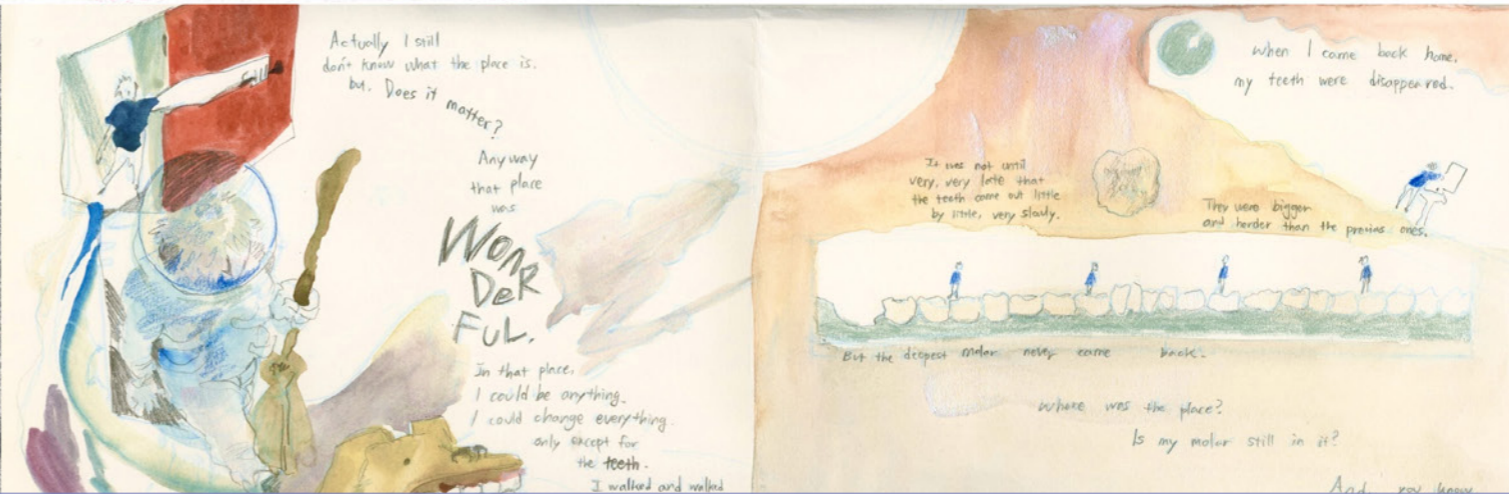 Actually I still
don't know what the place is.
but. Does it matter?
Any way
that place
was
WONDERFUL.
In that place,
I could be anything.
I could change everything.
only except for
the teeth.
I walked and walked
When I came back home,
my teeth were disappeared.
It was not until
very, very late that
the teeth came out little
by little, very slowly.
They were bigger
and harder than the previous ones.
But the deepest molar never came back.
Where was the place?
Is my molar still in it?
And you know